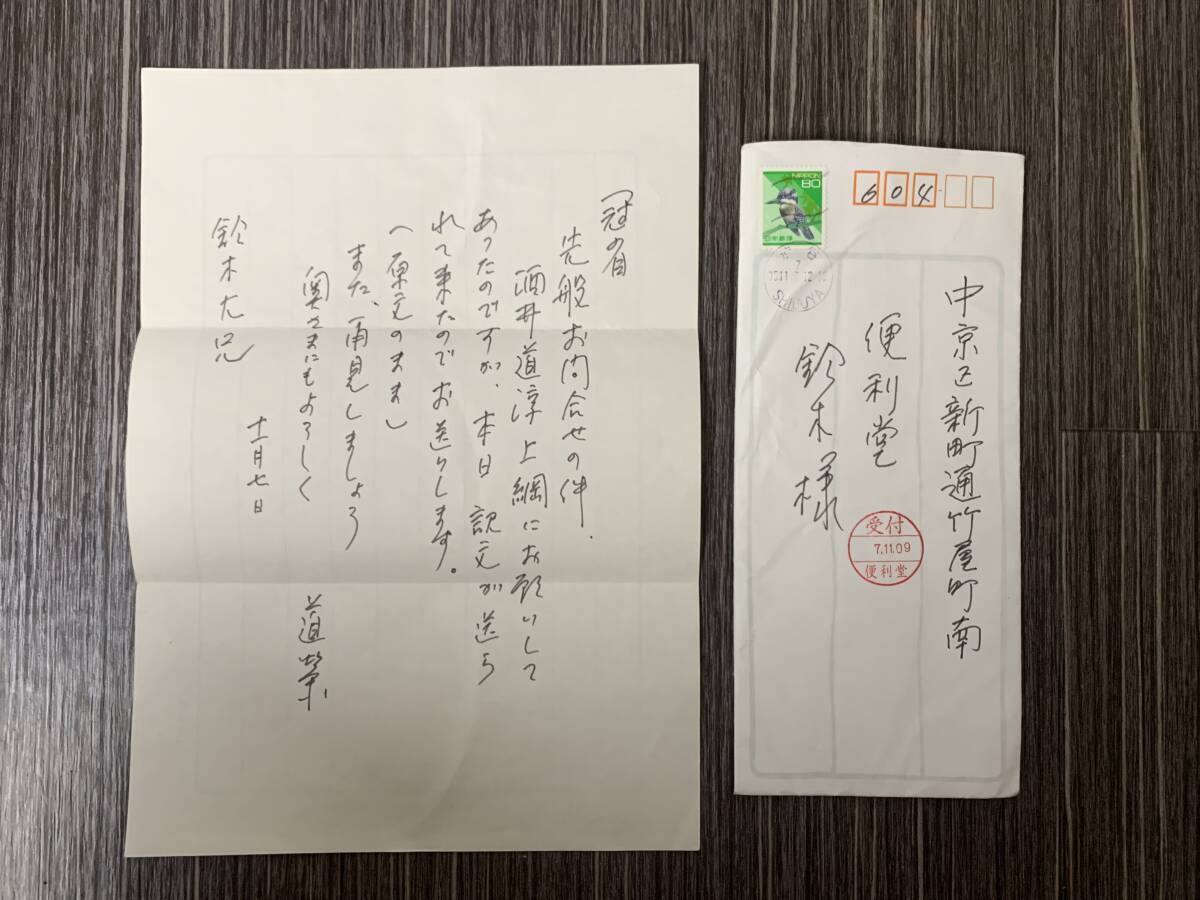 冠省
先般お問合せの件、
酒井道淳上綱にお願いして
あったのですが、本日訳文が送ら
れて来たのでお送りします。
(原文のまま)
また、再見しましょう
奥さまにもよろしく
道榮
十一月七日
鈴木大兄
NIPPON
80
日本郵便
604
SHIBUYA
中京区新町通竹屋町南
便利堂
鈴木様
受付
7.11.09
便利堂